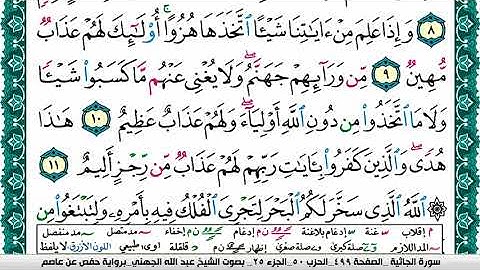 ٨ وَإِذَا عَلِمَ مِنْ ءَايَٰتِنَا شَيْـًٔا ٱتَّخَذَهَا هُزُوًا ۚ أُو۟لَٰٓئِكَ لَهُمْ عَذَابٌ
مُّهِينٌ ٩ مِّن وَرَآئِهِمْ جَهَنَّمُ ۖ وَلَا يُغْنِى عَنْهُم مَّا كَسَبُوا۟ شَيْـًٔا
وَلَا مَا ٱتَّخَذُوا۟ مِن دُونِ ٱللَّهِ أَوْلِيَآءَ ۖ وَلَهُمْ عَذَابٌ عَظِيمٌ ١٠ هَٰذَا
هُدًى ۖ وَٱلَّذِينَ كَفَرُوا۟ بِـَٔايَٰتِ رَبِّهِمْ لَهُمْ عَذَابٌ مِّن رِّجْزٍ أَلِيمٌ ١١
ٱللَّهُ ٱلَّذِى سَخَّرَ لَكُمُ ٱلْبَحْرَ لِتَجْرِىَ ٱلْفُلْكُ فِيهِ بِأَمْرِهِۦ وَلِتَبْتَغُوا۟ مِن
م إقلاب غنة إدغام بلاغنة ن إدغام ن إخفاء مد متصل مد منفصل
المد اللازم صلة كبرى صلة صغرى إظهار قلقلة طبيعي اللون الأزرق لا يلفظ
سورة الجاثية - الصفحة ٤٩٩ - الحزب ٥٠ - الجزء ٢٥ - بصوت الشيخ عبد الله الجهني - برواية حفص عن عاصم